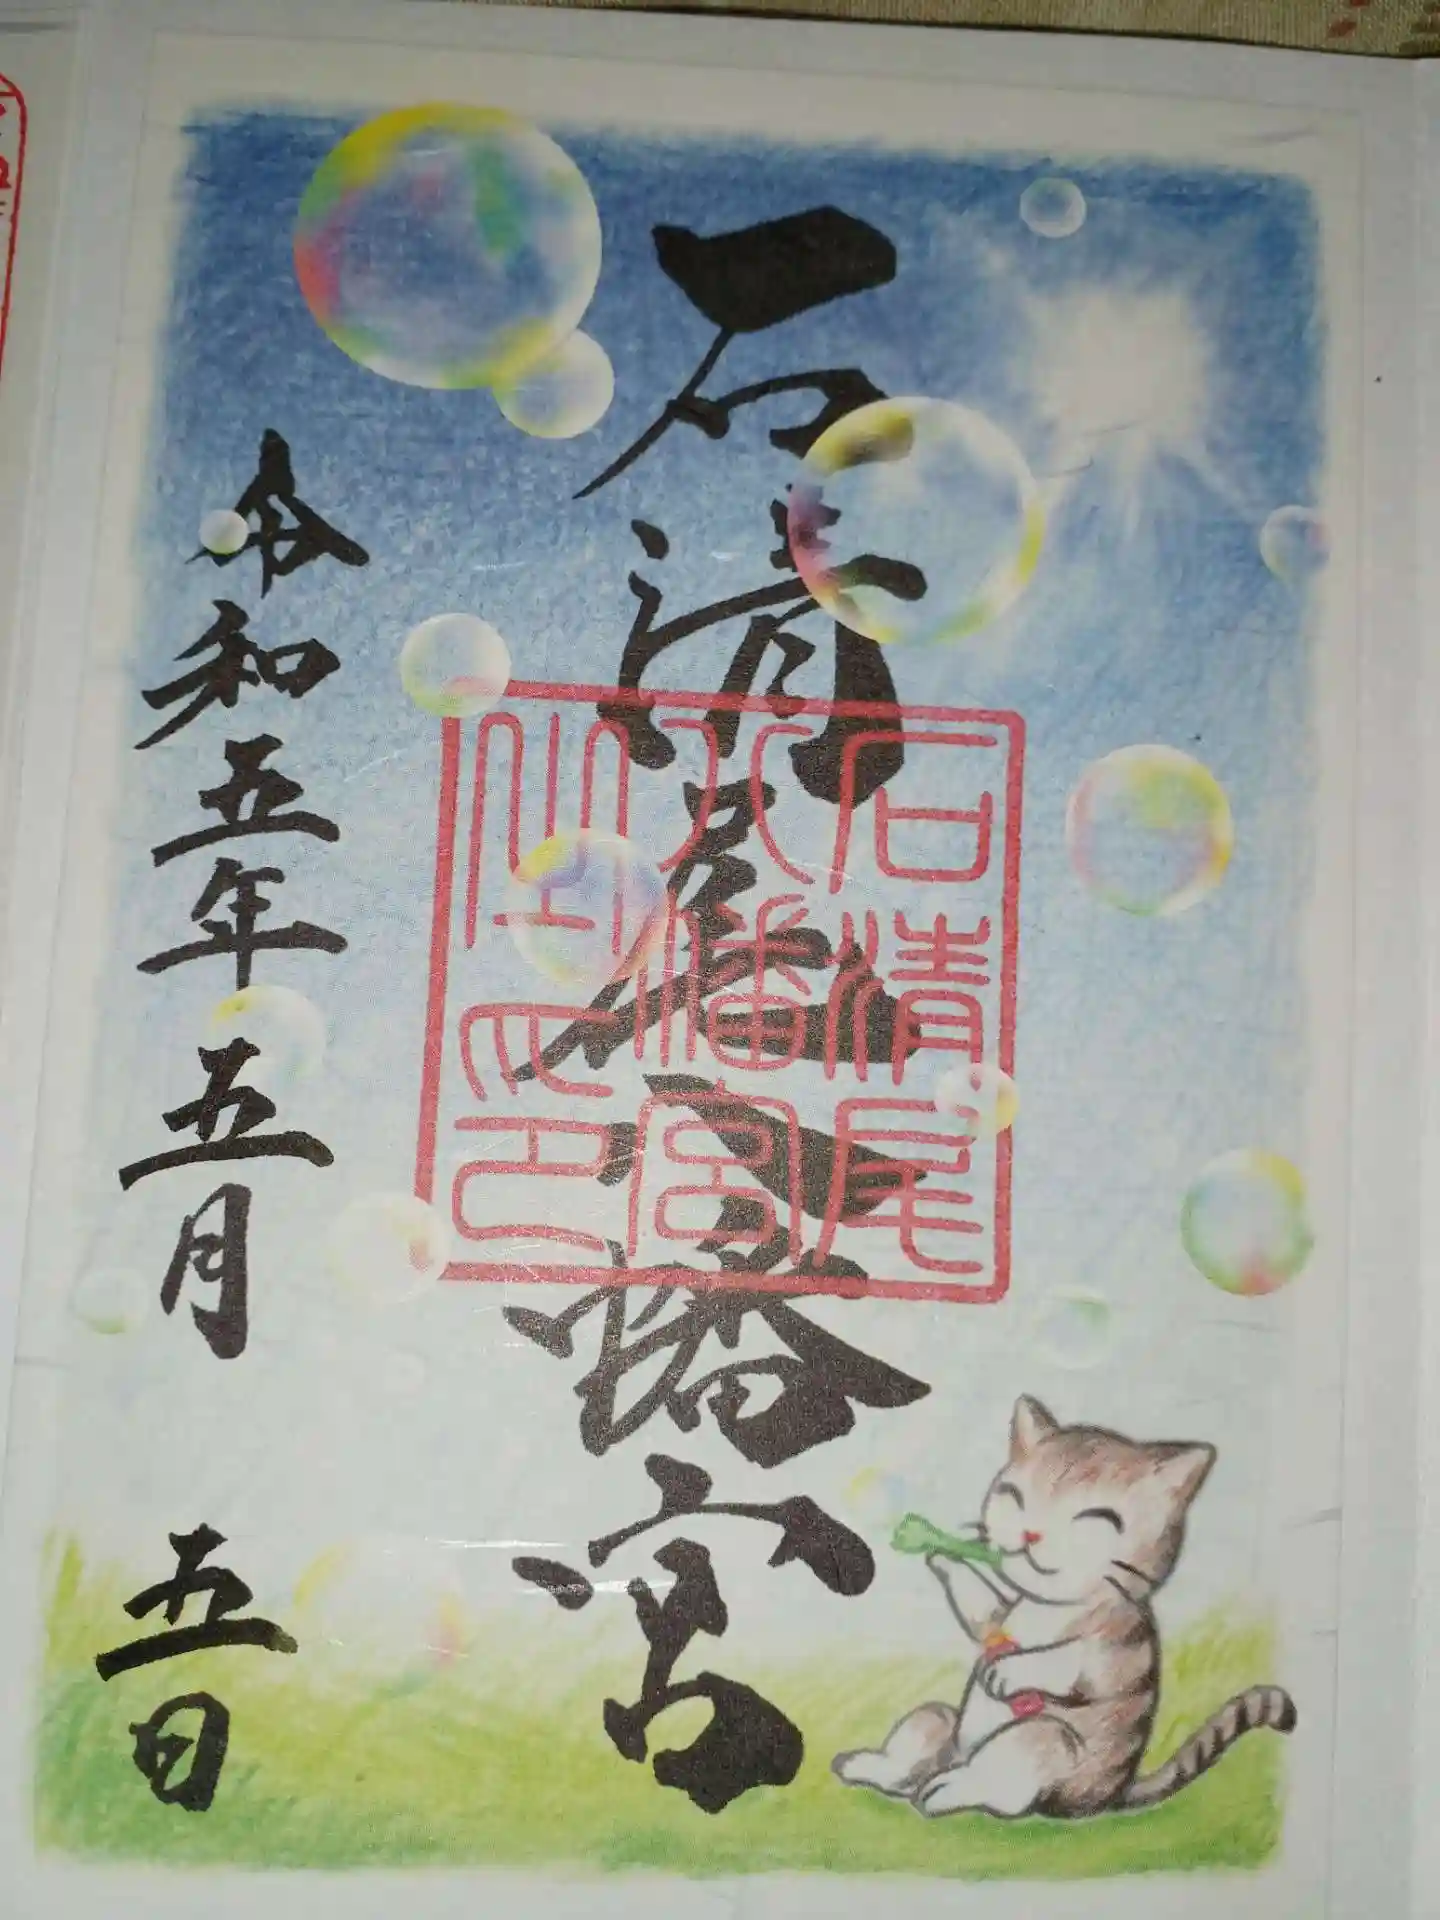 石清尾八幡宮
石清尾
八幡宮
之印
令和五年五月 五日